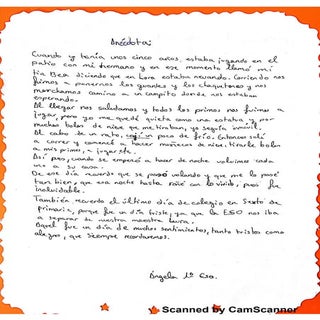 Anécdota:
Cuando yo tenía unos cinco años, estaba jugando en el
patio con mi hermano y en ese momento llamó mi
tía Bea diciendo que en Lora estaba nevando. Corriendo nos
fuimos a ponernos los guantes y los chaquetones y nos
marchamos camino a un campito donde nos estaban
esperando.
Al llegar nos saludamos y todos los primos nos fuimos a
jugar, pero yo me quedé quieta como una estatua y por
muchas bolas de nieve que me tiraban, yo seguía inmóvil.
Al cabo de un rato, cogí un poco de frío. Entonces salí
a correr y comencé a hacer muñecos de nieve, tirarle bolas
a mis primos, a jugar...
Así pues, cuando se empezó a hacer de noche volvimos cada
uno a su casa.
De ese día recuerdo que se pasó volando y que me lo pasé
tan bien, que esa noche hasta soñé con lo vivido, pues fue
inolvidable.
También recuerdo el último día de colegio en Sexto de
primaria, porque fue un día triste, ya que la ESO nos iba
a separar de nuestra maestra Laura.
Aquel fue un día de muchos sentimientos, tanto tristes como
alegres, que siempre recordaremos.
Ángela 1º Eso.
Scanned by CamScanner